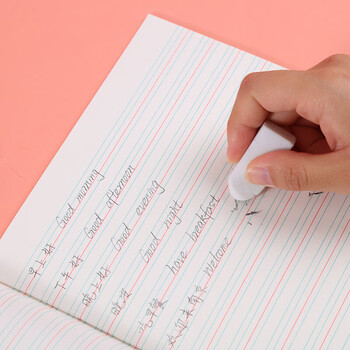 早上好 Good morning
下午好 Good afternoon
晚上好 Good evening
晚安 Good night
吃早餐 have breakfast
欢迎来到 Welcome